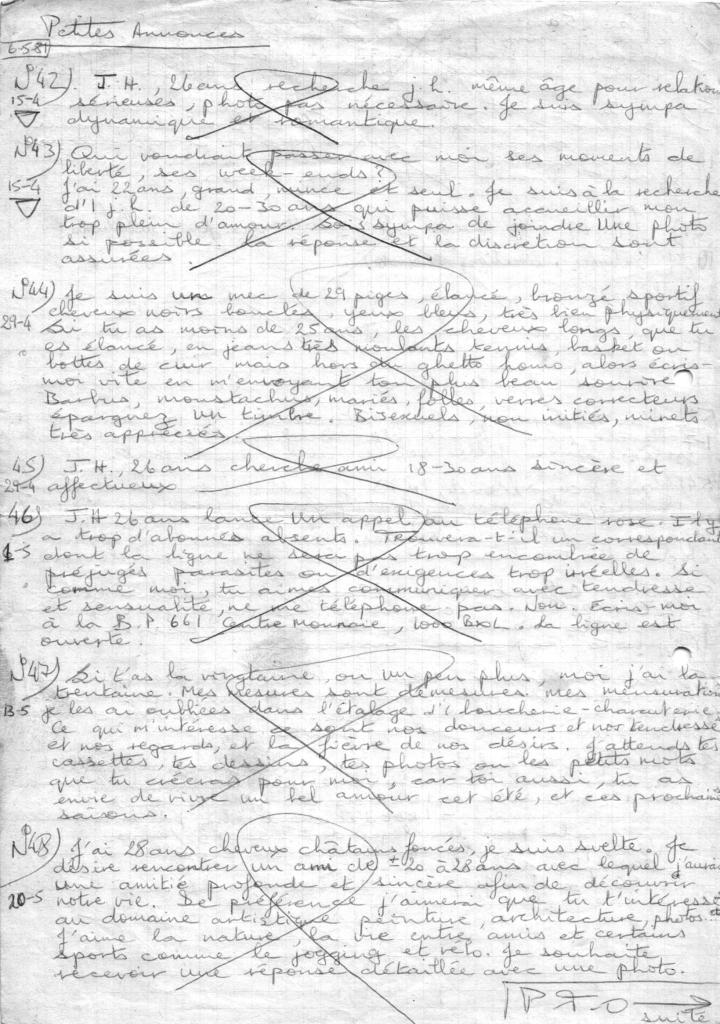 Petites Annonces
6-5-81
N°42) J.H., 26 ans recherche j.h. même âge pour relation
15-4 sérieuses, photo pas nécessaire. Je suis sympa
dynamique et romantique.
N°43) Qui voudrait passer avec moi ses moments de
liberté, ses week-ends?
15-4 J'ai 22 ans, grand, mince et seul. Je suis à la recherche
d'1 j.h. de 20-30 ans qui puisse accueillir mon
trop plein d'amour sois sympa de joindre une photo
si possible. La réponse et la discretion sont
assurées.
N°44) Je suis un mec de 29 piges, élancé, bronzé sportif
29-4 cheveux noirs bouclés, yeux bleus, très bien physiquement
Si tu as moins de 25 ans, les cheveux longs, que tu
es élancé, en jeans très moulants, tennis, basket ou
bottes de cuir mais hors du ghetto homo, alors écris-
moi vite en m'envoyant ton plus beau sourire
Barbus, moustachus, mariés, folles, verres correcteurs
épargnez un timbre. Bisexuels, non initiés, minets
très appréciés
45) J.H., 26 ans cherche ami 18-30 ans sincère et
29-4 affectueux
46) J.H 26 ans lance un appel au téléphone rose. Il y
a trop d'abonnés absents. Trouvera-t-il un correspondant
1-5 dont la ligne ne sera pas trop encombrée de
préjugés parasites ou d'exigences trop irréelles. Si
comme moi, tu aimes communiquer avec tendresse
et sensualité, ne me téléphone pas. Non. Ecris-moi
à la B.P. 661 Centre Monnaie, 1000 BXL. La ligne est
ouverte.
N°47) Si t'as la vingtaine, ou un peu plus, moi j'ai la
trentaine. Mes mesures sont démesures. mes mensurations
13-5 je les ai oubliées dans l'étalage d'1 boucherie-charcuterie
Ce qui m'intéresse ce sont nos douceurs et nos tendresses
et nos regards, et la fièvre de nos désirs. J'attends tes
cassettes, tes dessins, tes photos ou les petits mots
que tu créeras pour moi, car toi aussi, tu as
envie de vivre un bel amour cet été, et ces prochaines
saisons.
N°48) J'ai 28 ans cheveux châtains foncés, je suis svelte. Je
désire rencontrer un ami de ± 20 à 28 ans avec lequel j'aurai
une amitié profonde et sincère afin de découvrir
20-5 notre vie. De préférence j'aimerai que tu t'intéresses
au domaine artistique peinture, architecture, photos...
J'aime la nature, la vie entre amis et certains
sports comme le jogging et vélo. Je souhaite
recevoir une réponse détaillée avec une photo.
suite